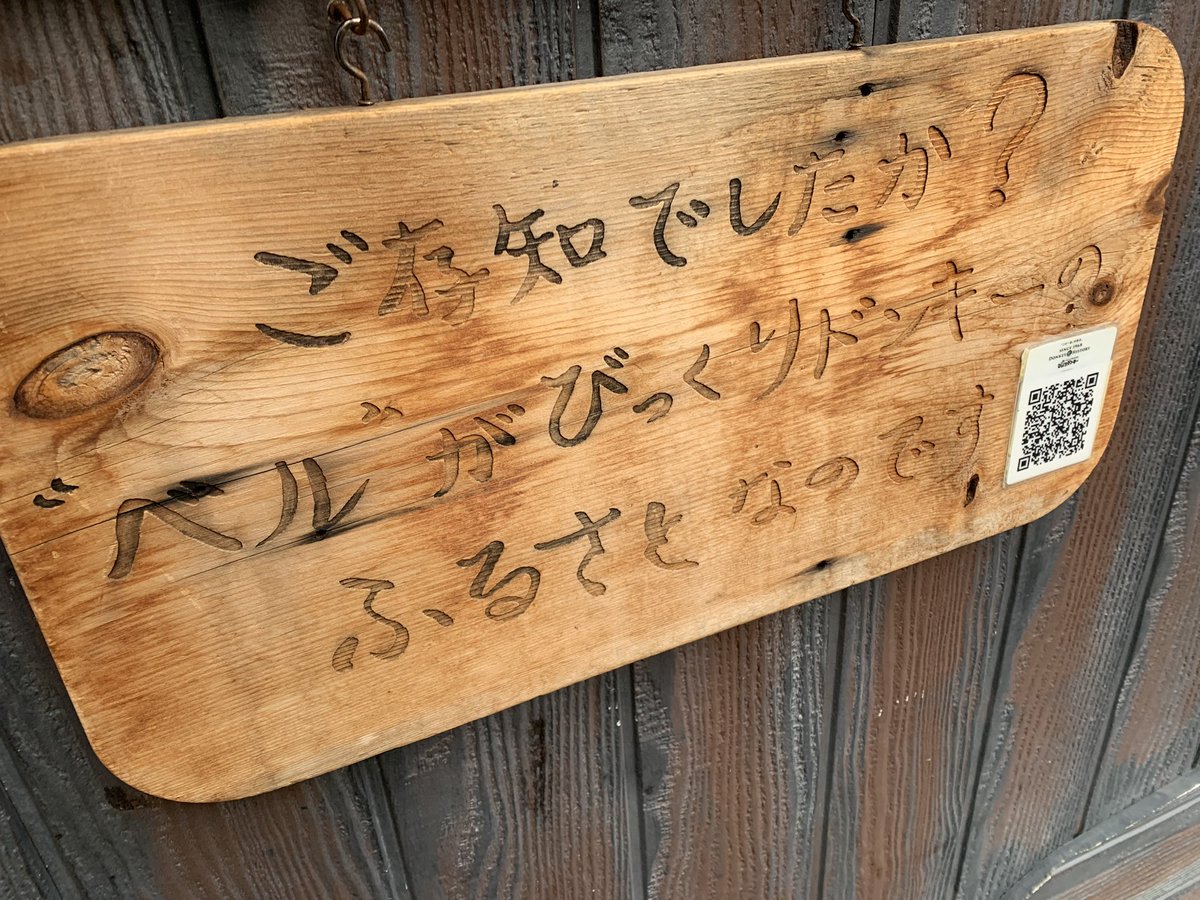 ご存知でしたか?
〝ベル〟がびっくりドンキーの
ふるさとなのです
SINCE 1968